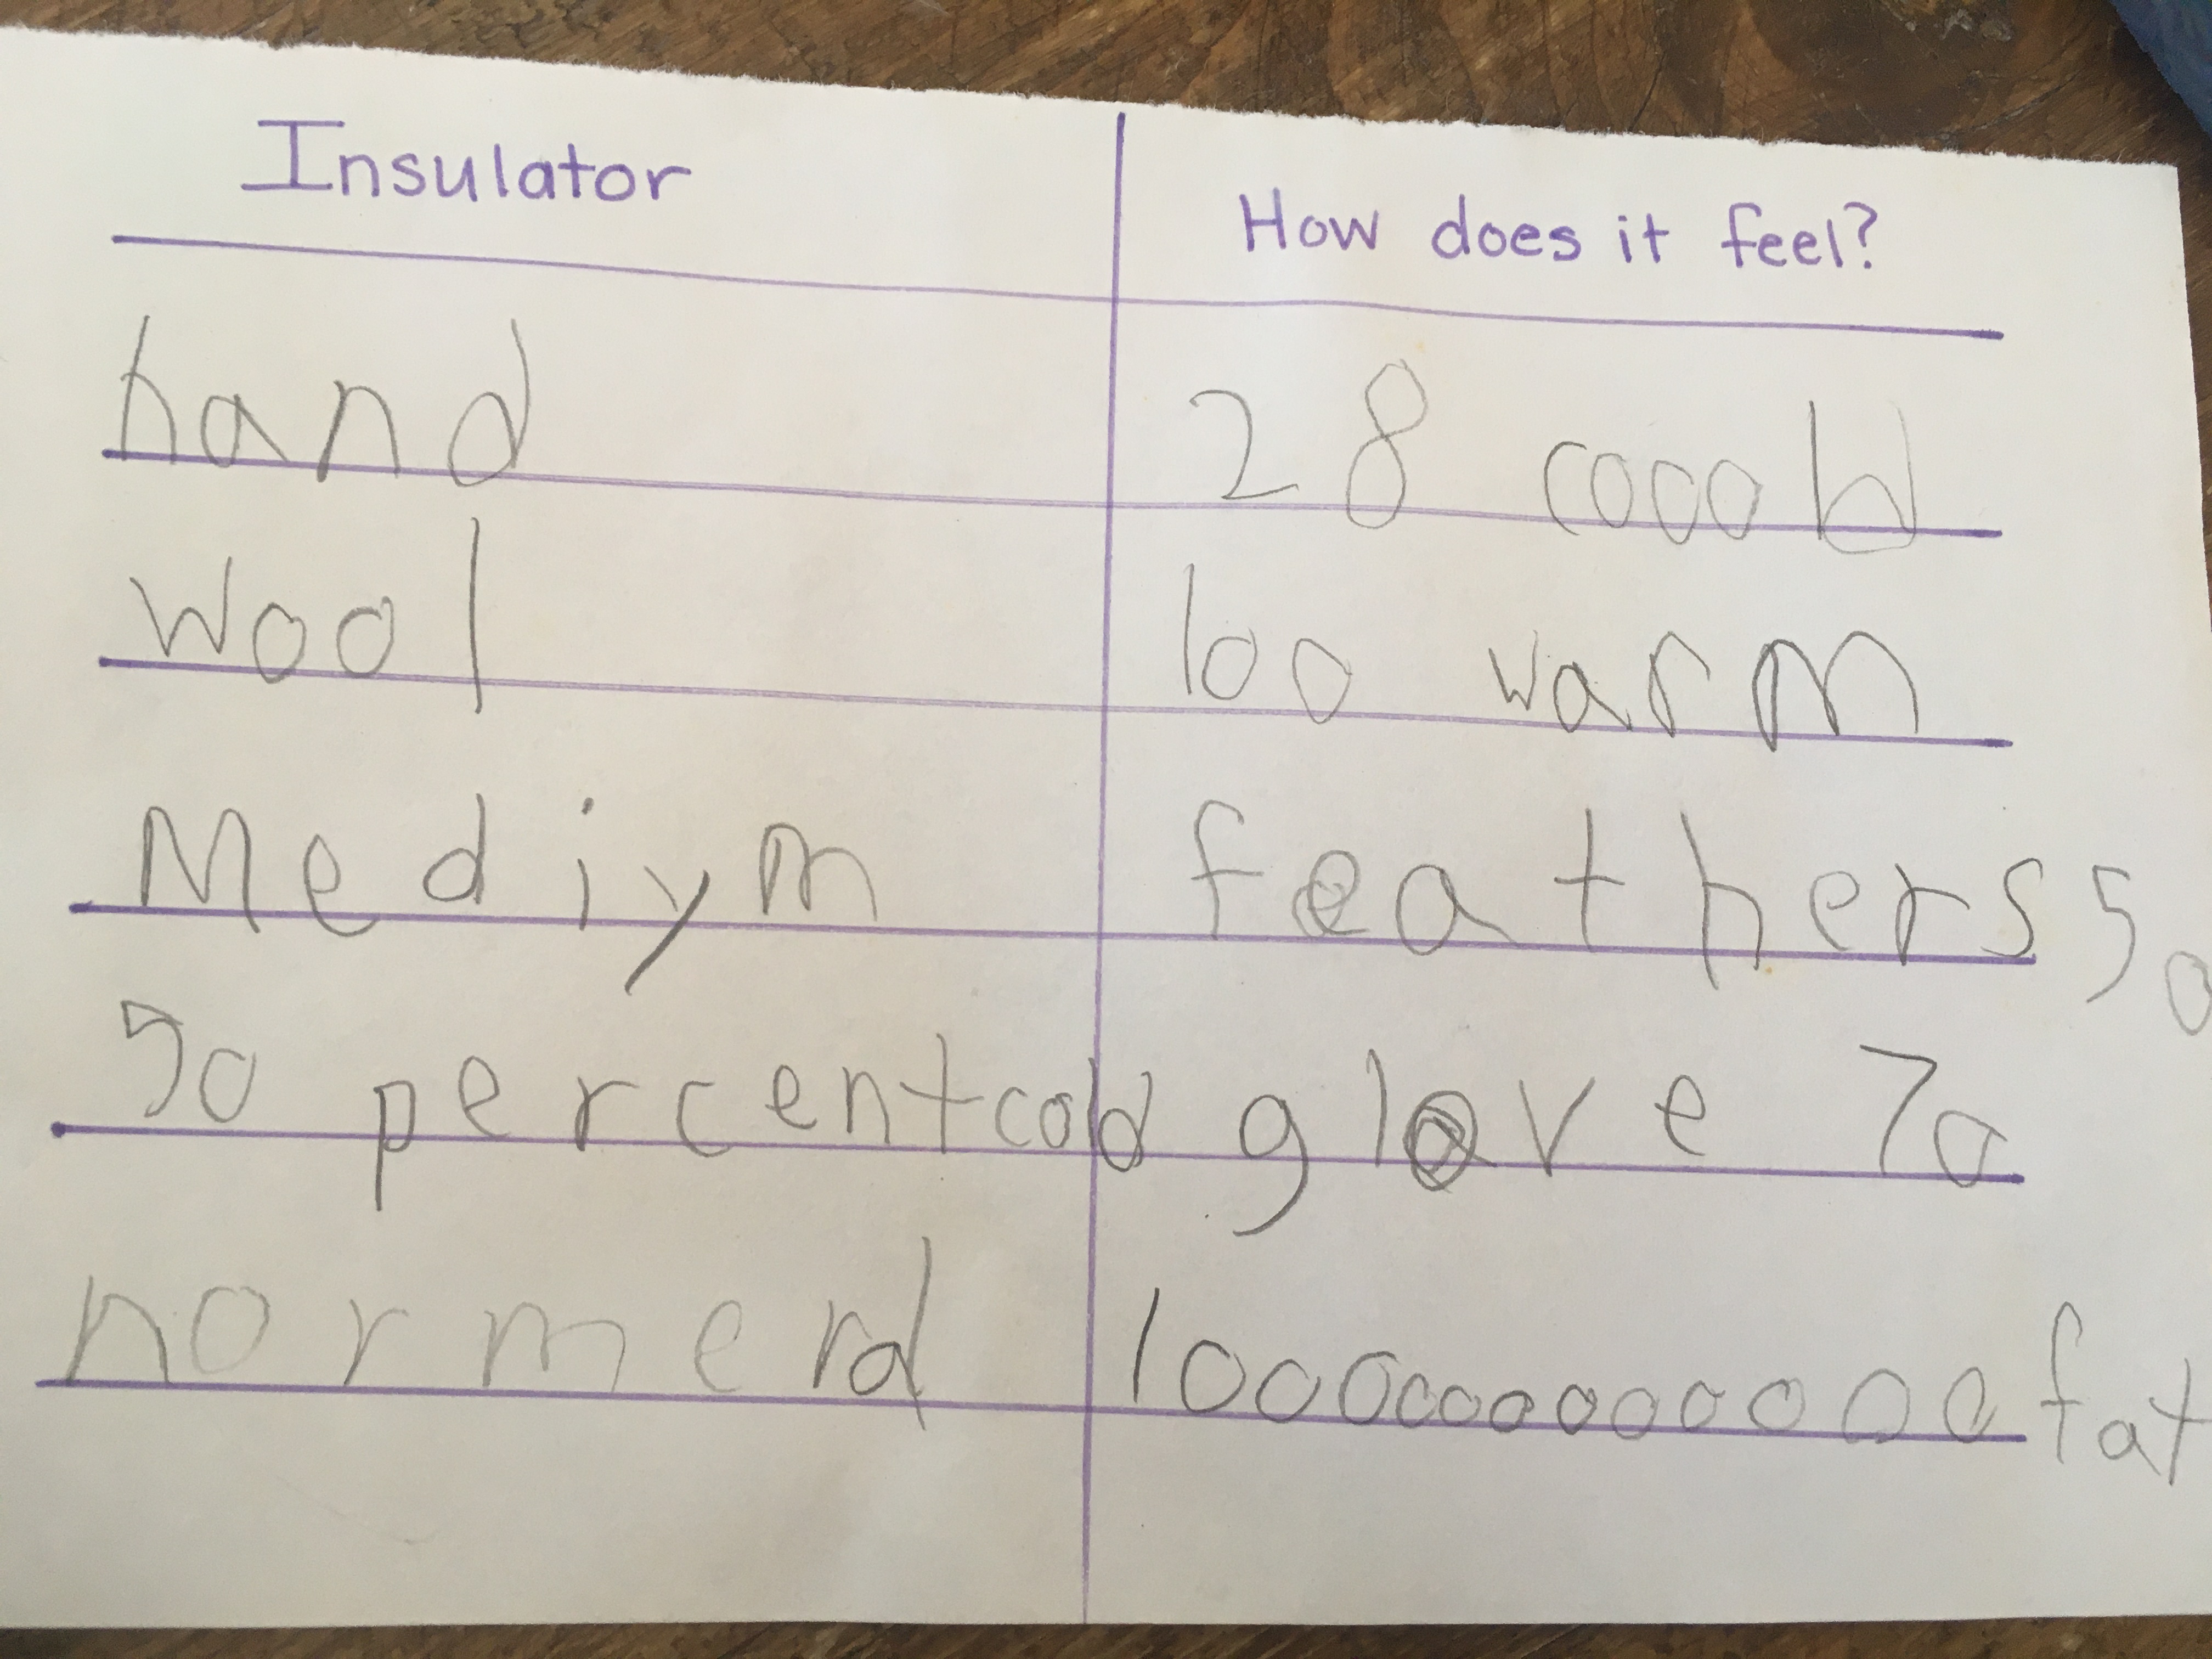 Insulator How does it feel?
hand 28 cooold
wool 100 warm
Mediym feathers 50
50 percent cold glove 70
normerd 1000000000000 fat